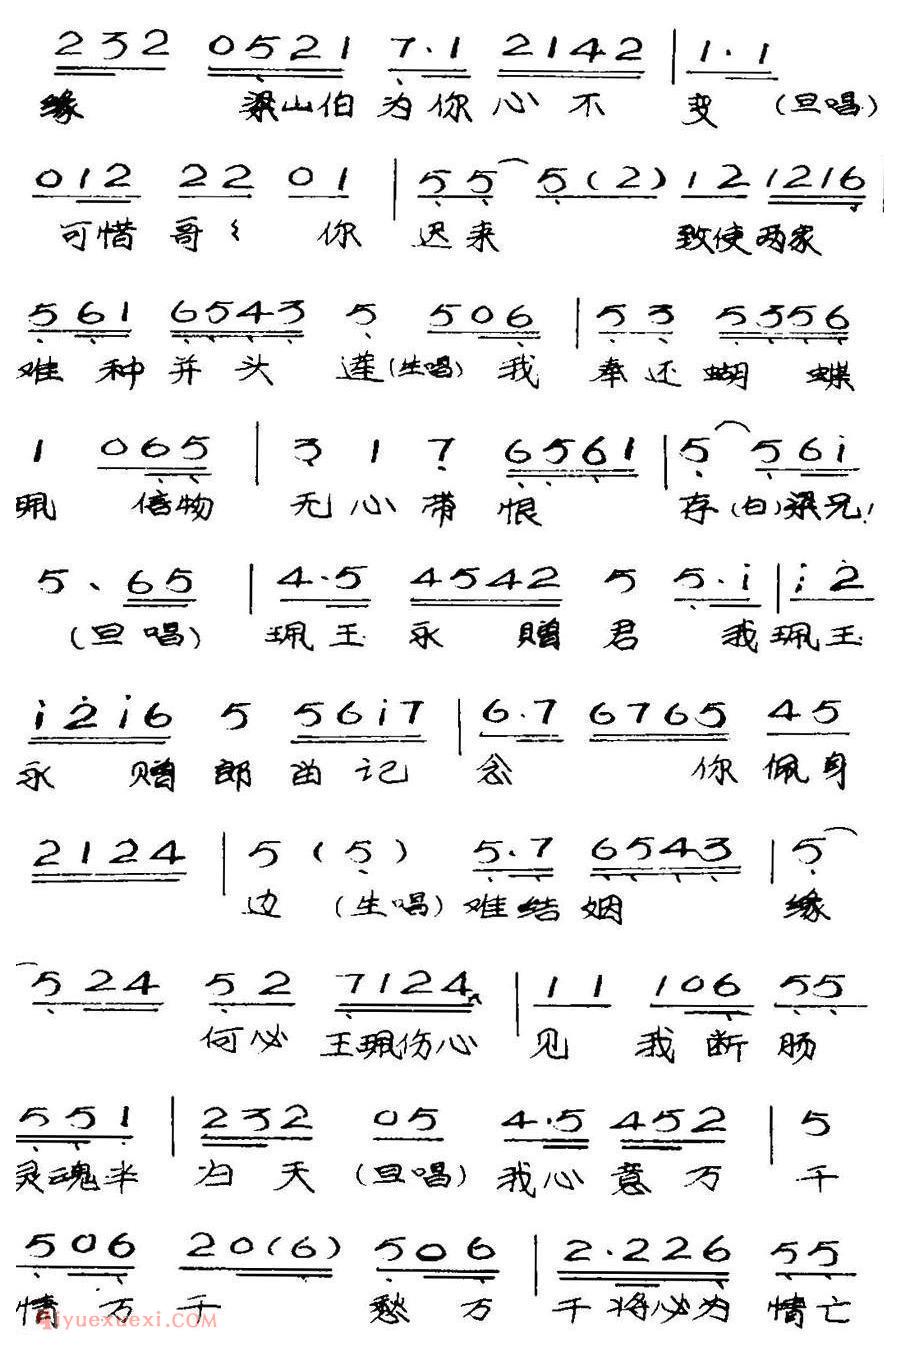 2 3 2 0 5 2 1 7·1 2 1 4 2 | 1·1
缘 梁山伯 为 你 心 不 变 (旦唱)
0 1 2 2 2 0 1 | 5 5 5 (2) 1 2 1 2 1 6
可惜 哥 你 迟 来 致使两家
5 6 1 6 5 4 3 5 5 0 6 | 5 3 5 3 5 6
难 种 并 头 莲 (生唱) 我 奉 还 蝴 蝶
1 0 6 5 | 3 1 7 6 5 6 1 | 5 5 6 i
珮 信物 无 心 带 恨 存 (白) 梁兄!
5、6 5 | 4·5 4 5 4 2 5 5·i | i 2
(旦唱) 珮 玉 永 赠 君 我 珮 玉
i 2 i 6 5 5 6 i 7 | 6·7 6 7 6 5 4 5
永 赠 郎 留 记 念 你 佩 身
2 1 2 4 | 5 (5) 5·7 6 5 4 3 | 5
边 (生唱) 难 结 姻 缘
5 2 4 5 2 7 1 2 4 | 1 1 1 0 6 5 5
何 必 玉珮伤心 见 我 断 肠
5 5 1 | 2 3 2 0 5 4·5 4 5 2 | 5
灵魂半 归 天 (旦唱) 我心 意 万 千
5 0 6 2 0 (6) 5 0 6 | 2·2 2 6 5 5
情 万 千 愁 万 千 将必为 情亡
jiyuexuexi.com